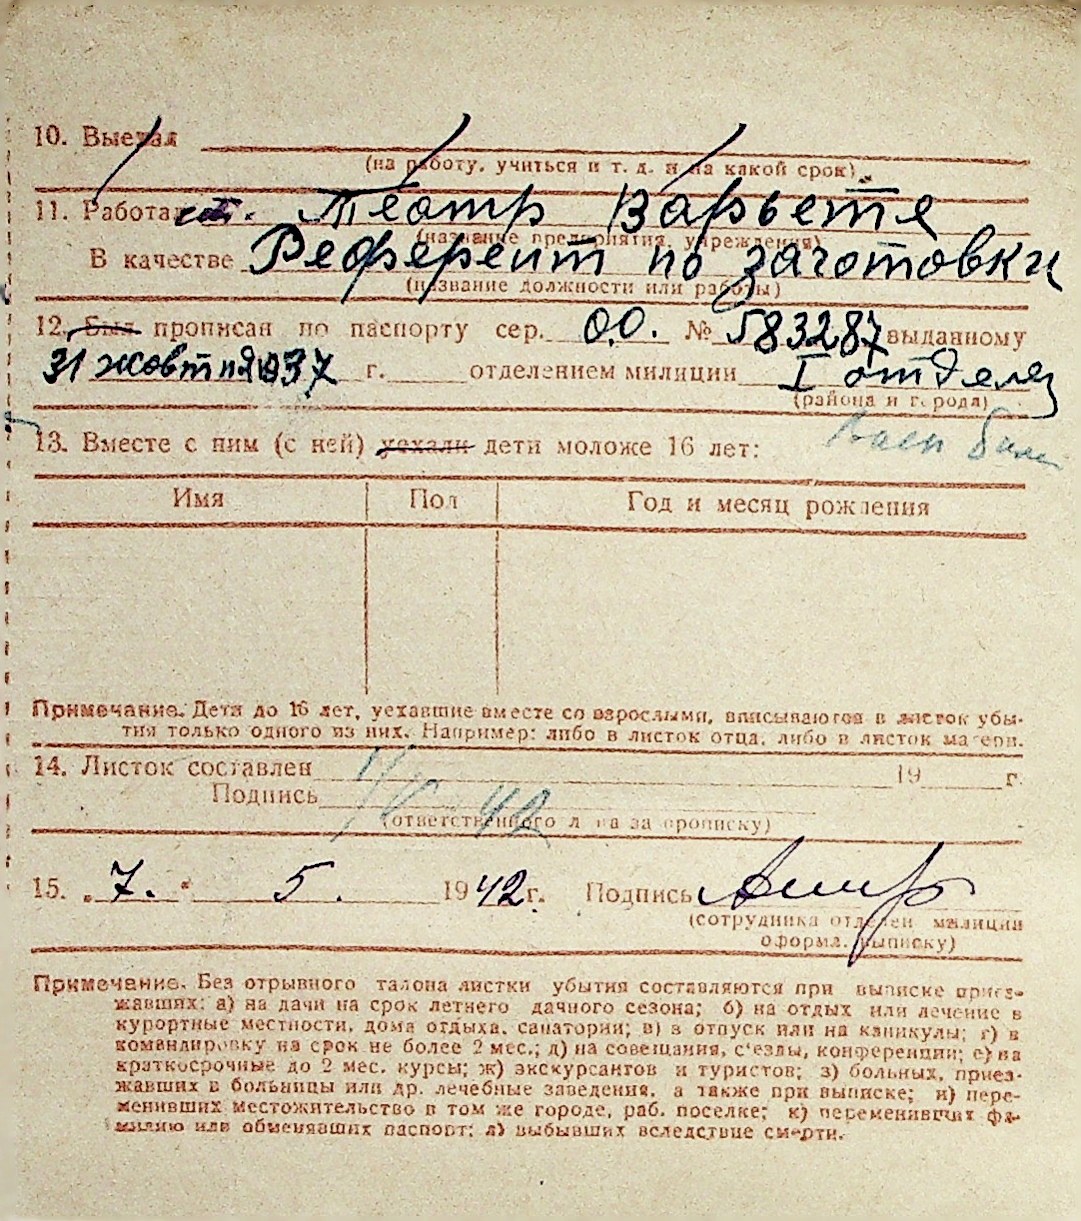 10. Выехал
(на работу, учиться и т. д. и на какой срок).
11. Работа Театр Варьете
(название предприятия, учреждения)
В качестве Референт по заготовки
(название должности или работы)
12. Был прописан по паспорту сер. О.О. № 583287 выданному
31 жовтня 1937 г. отделением милиции I отделе
(района и города)
13. Вместе с ним (с ней) уехали дети моложе 16 лет:
Имя Пол Год и месяц рождения
Примечание. Дети до 16 лет, уехавшие вместе со взрослыми, вписываются в листок убы-
тия только одного из них. Например: либо в листок отца, либо в листок матери.
14. Листок составлен 19 г.
Подпись 42
(ответственного лица за прописку)
15. „7.“ 5. 1942 г. Подпись
(сотрудника отделен милиции
оформ. выписку)
Примечание. Без отрывного талона листки убытия составляются при выписке приез-
жавших: а) на дачи на срок летнего дачного сезона; б) на отдых или лечение в
курортные местности, дома отдыха, санатории; в) в отпуск или на каникулы; г) в
командировку на срок не более 2 мес.; д) на совещания, с'езды, конференции; е) на
краткосрочные до 2 мес. курсы; ж) экскурсантов и туристов; з) больных, приез-
жавших в больницы или др. лечебные заведения, а также при выписке; и) пере-
менивших местожительство в том же городе, раб. поселке; к) переменивших фа-
милию или обменявших паспорт; л) выбывших вследствие смерти.